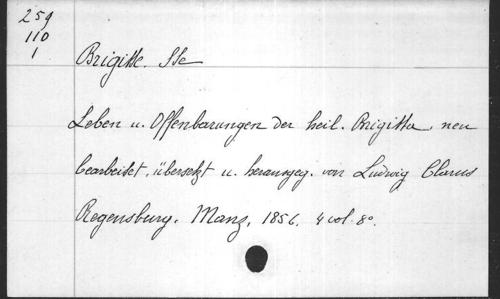 259
110
1
Brigitte. Ste
Leben u. Offenbarungen der heil. Brigitta, neu
bearbeitet, übersetzt u. herausgeg. von Ludwig Clarus
Regensburg, Manz, 1856. 4 vol. 8°.